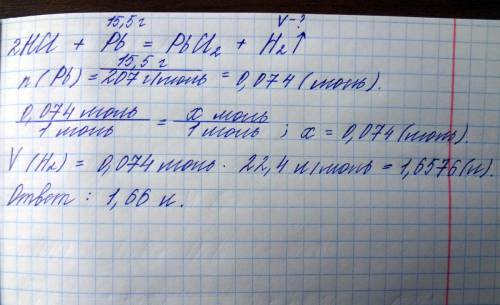 15,5 г V-?
2HCl + Pb = PbCl₂ + H₂↑
15,5 г
n(Pb) = 207 г/моль = 0,074 (моль).
0,074 моль x моль
1 моль = 1 моль ; x = 0,074 (моль).
V(H₂) = 0,074 моль · 22,4 л/моль = 1,6576 (л).
Ответ: 1,66 л.